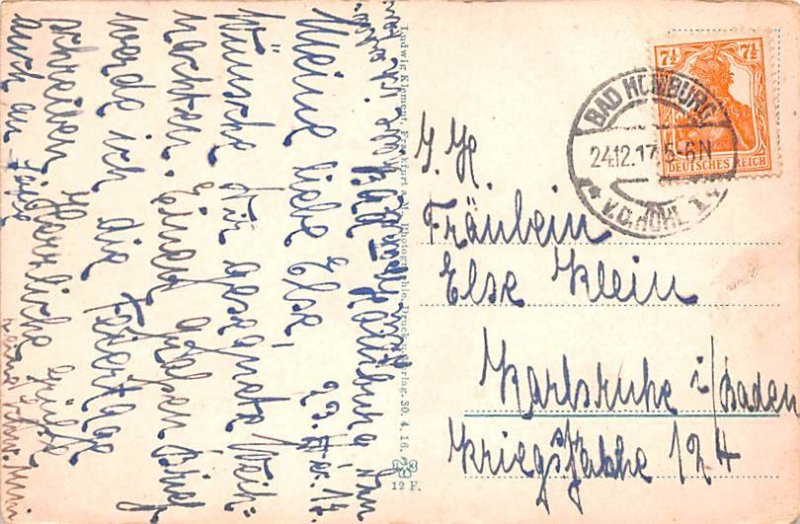 Bad Homburg, den
23. XII. 17.
Meine liebe Else,
Wünsche dir gesegnete Weih-
nachten. Einen großen Brief
werde ich die Feiertage
schreiben. Herzliche Grüße
auch an
Ludwig Klement, Frankfurt a. M. Photographie, Druck u. Verlag. 30. 4. 16.
12 F.
7½ 7½
DEUTSCHES REICH
BAD HOMBURG
24.12.17. 5-6N
V.D. HÖHE
I. H.
Fräulein
Else Klein
Karlsruhe i/Baden
Kriegstraße 124